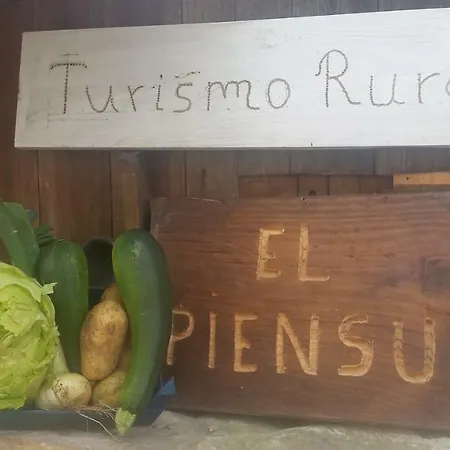 Turismo Rura
EL
PIENSU